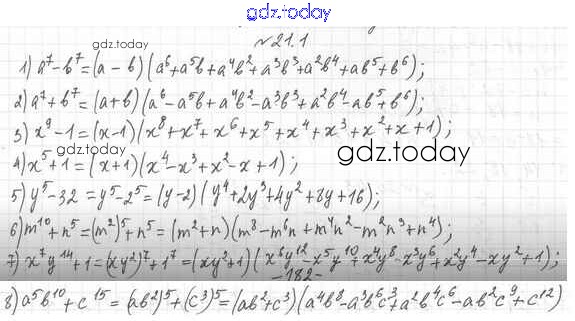 gdz.today
№21.1
gdz.today
1) a⁷-b⁷=(a-b)(a⁶+a⁵b+a⁴b²+a³b³+a²b⁴+ab⁵+b⁶);
2) a⁷+b⁷=(a+b)(a⁶-a⁵b+a⁴b²-a³b³+a²b⁴-ab⁵+b⁶);
3) x⁹-1=(x-1)(x⁸+x⁷+x⁶+x⁵+x⁴+x³+x²+x+1);
gdz.today
gdz.today
4) x⁵+1=(x+1)(x⁴-x³+x²-x+1);
5) y⁵-32=y⁵-2⁵=(y-2)(y⁴+2y³+4y²+8y+16);
6) m¹⁰+n⁵=(m²)⁵+n⁵=(m²+n)(m⁸-m⁶n+m⁴n²-m²n³+n⁴);
7) x⁷y¹⁴+1=(xy²)⁷+1⁷=(xy²+1)(x⁶y¹²-x⁵y¹⁰+x⁴y⁸-x³y⁶+x²y⁴-xy²+1);
-182-
8) a⁵b¹⁰+c¹⁵=(ab²)⁵+(c³)⁵=(ab²+c³)(a⁴b⁸-a³b⁶c³+a²b⁴c⁶-ab²c⁹+c¹²)